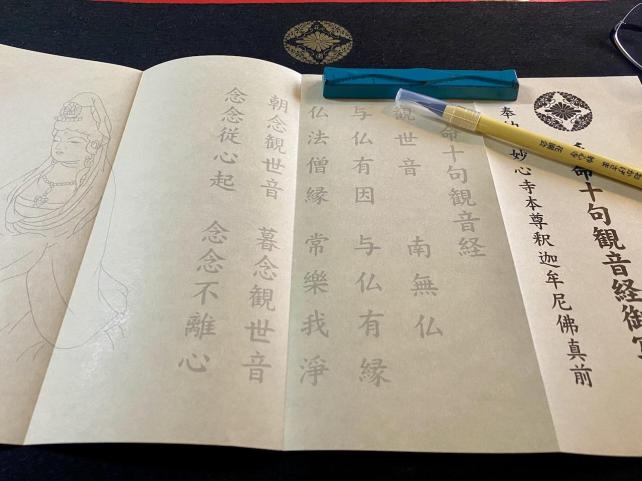 命十句観音経御
奉 妙心寺本尊釈迦牟尼佛真前
命十句観音経
観世音 南無仏
与仏有因 与仏有縁
仏法僧縁 常樂我淨
朝念観世音 暮念観世音
念念從心起 念念不離心
妙心寺 花園会